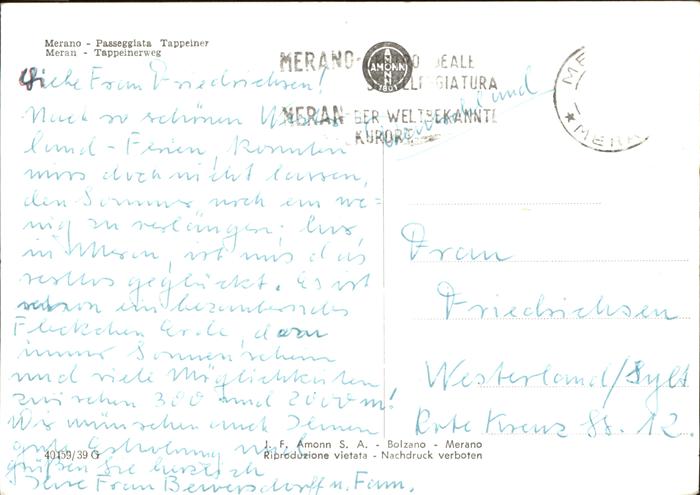 Merano - Passeggiata Tappeiner
Meran - Tappeinerweg
Liebe Frau Friedrichsen!
Nach so schönen
land-Ferien, konnten
wir's doch nicht lassen,
den Sommer noch ein we=
nig zu verlängen; hier,
in Meran, ist uns das
restlos geglückt. Es ist
schon ein bezauberndes
Fleckchen Erde, dazu
immer Sonnenschein
und viele Möglichkeiten
zwischen 300 und 2000 m!
Wir wünschen auch Ihnen
gute Erholung und
grüßen Sie herzlich
Ihre Frau Bewersdorff u. Fam.
MERANO- IDEALE
VILLEGGIATURA
MERAN- DER WELTBEKANNTE
KURORT
AMONN
1801
MERA
Frau
Friedrichsen
Westerland/Sylt
Rote Kreuz Str. 12.
40159/39 G
J. F. Amonn S. A. - Bolzano - Merano
Riproduzione vietata - Nachdruck verboten